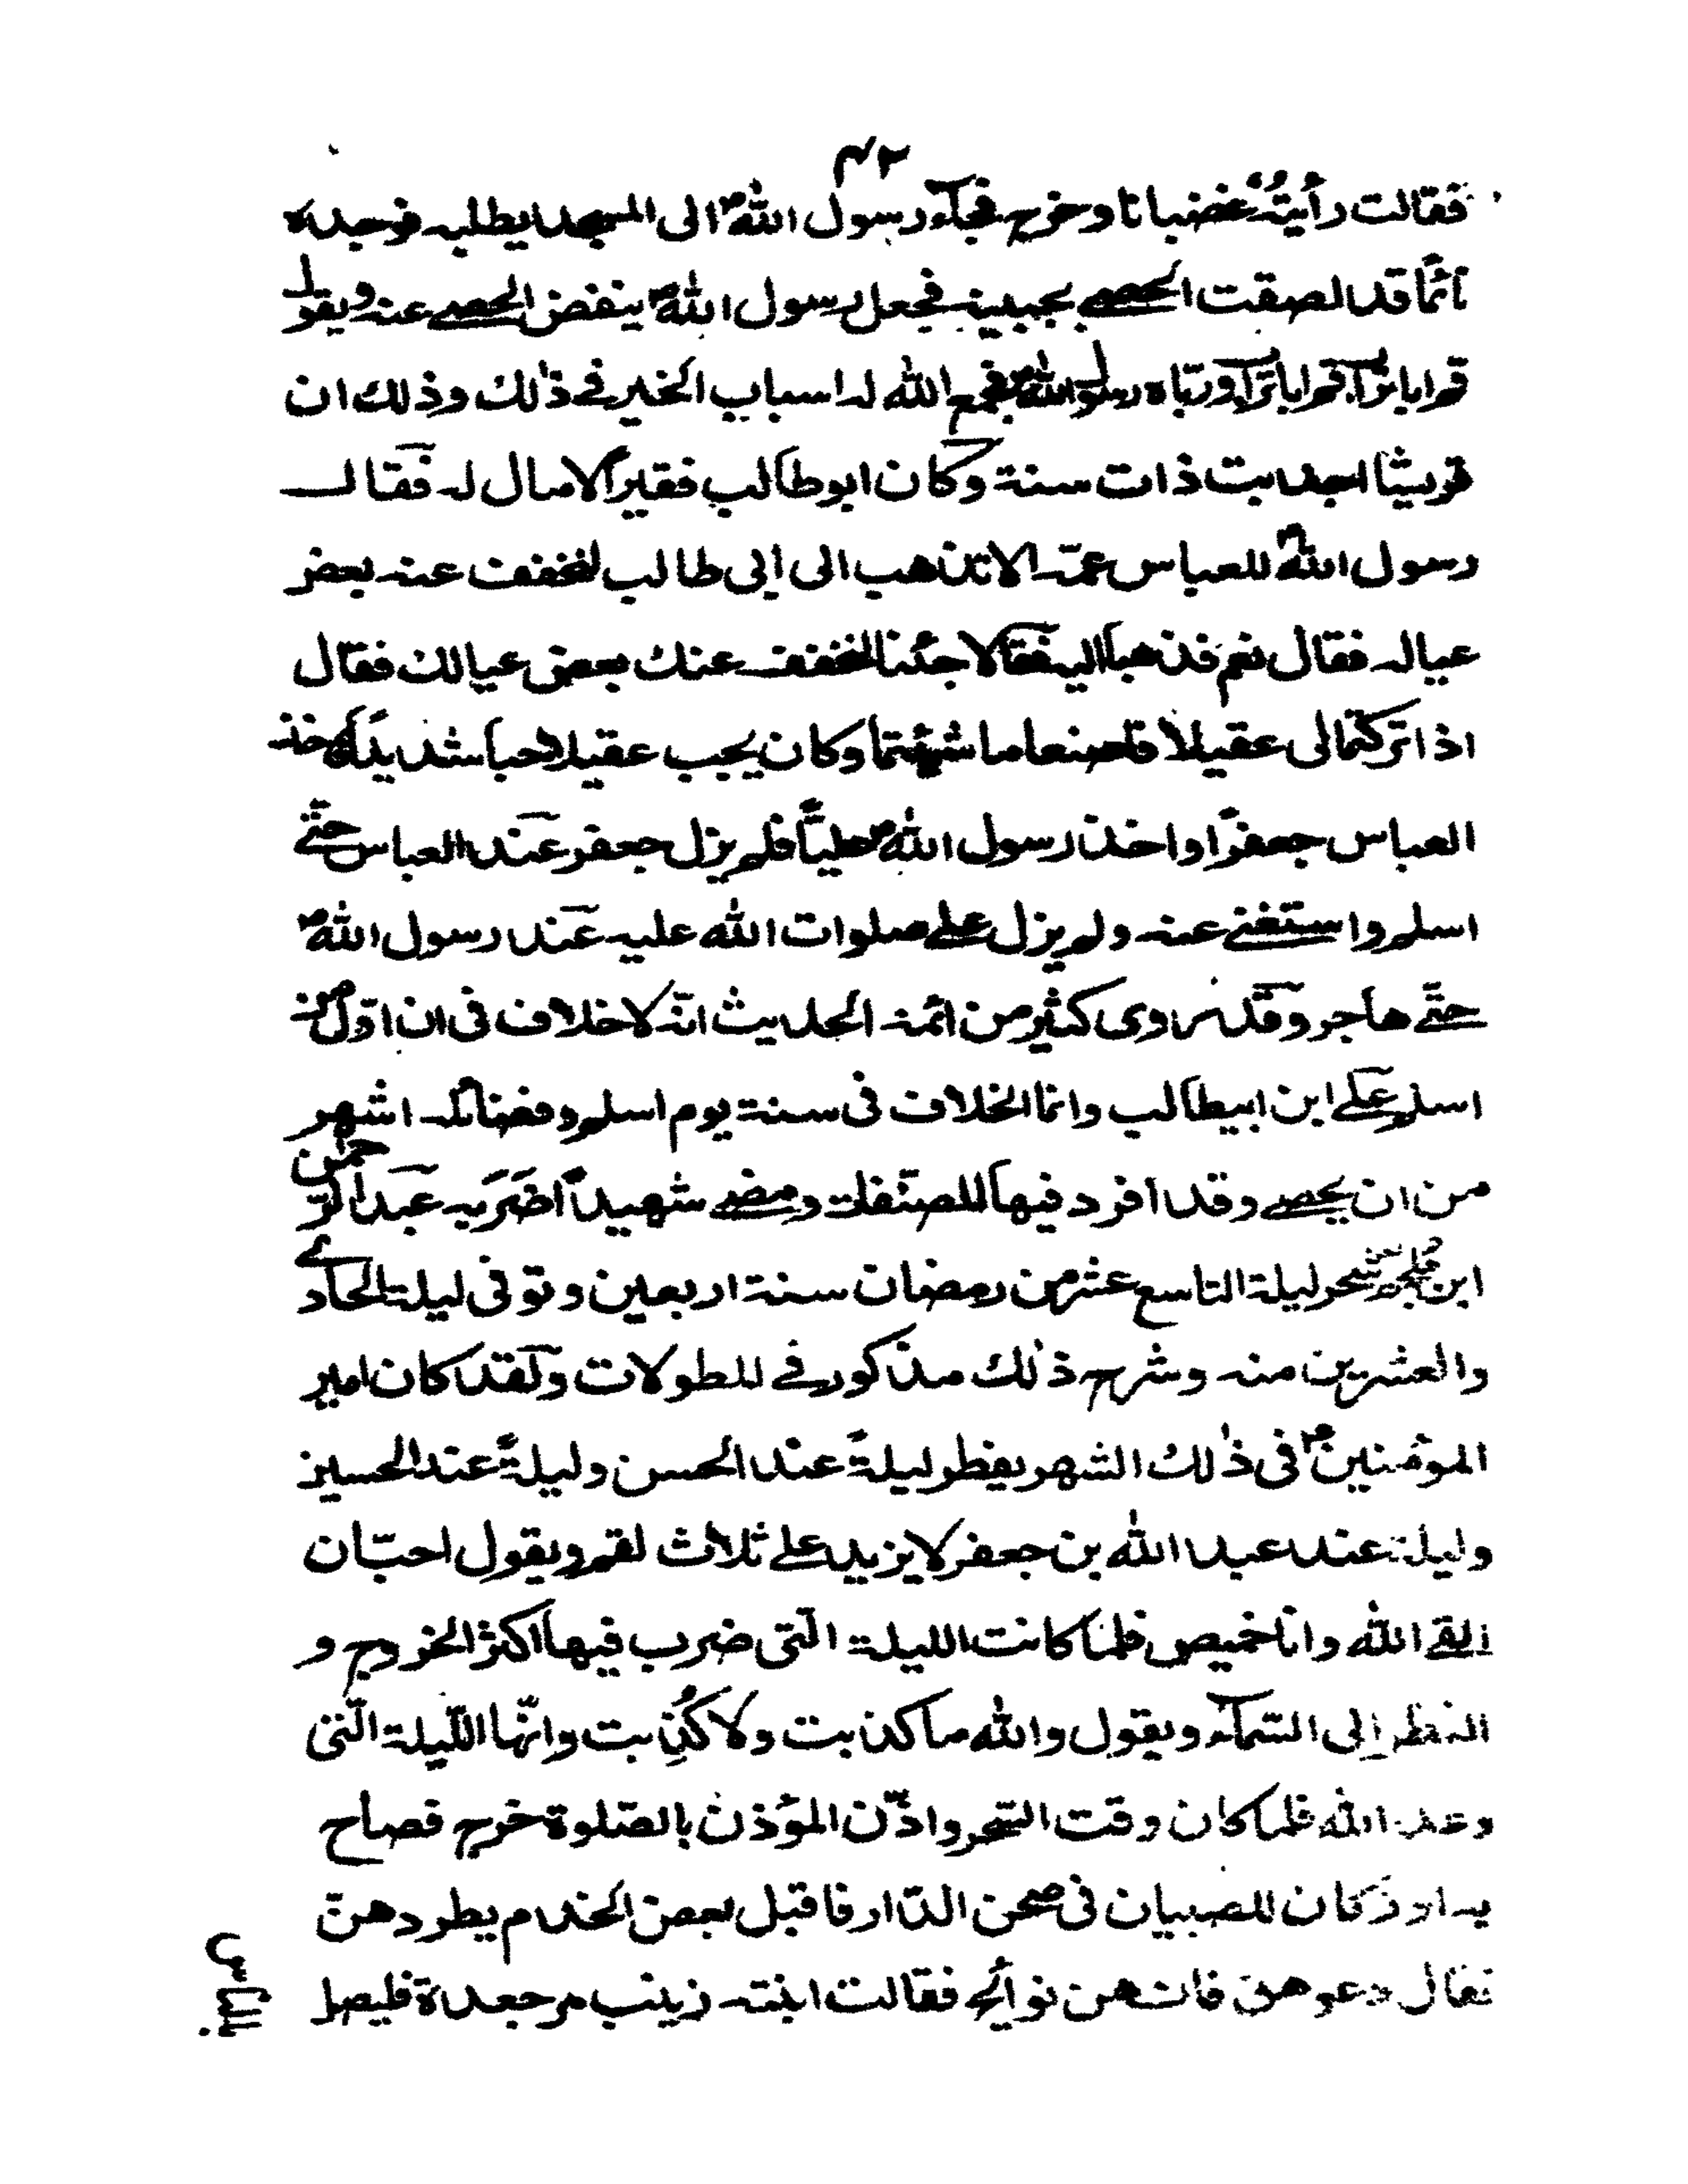 ٤٢
فقالت رأيته غضبانا وخرج فجآء رسول اللهص الى المسجد يطلبه فوجده
نائما قد الصقت الحصى بجبينه فجعل رسول اللهص ينفض الحصى عنه ويقول
قم اباتراب قم اباتراب وربّاه رسول اللهص فجمع الله له اسباب الخير فى ذلك وذلك ان
قريشا اجدبت ذات سنة وكان ابوطالب فقيراً لامال له فقال
رسول اللهص للعباس عمّه الا تذهب الى ابى طالب لنخفف عنه بعض
عياله فقال نعم فذهبا اليه فقالا جئنا لنخفف عنك بعض عيالك فقال
اذا تركتما لى عقيلا فاصنعا ما شئتما وكان يحب عقيلا حبا شديدًا فاخذ
العباس جعفرًا واخذ رسول اللهص عليًّا فلم يزل جعفر عند العباس حتّى
اسلم واستغنى عنه ولم يزل على صلوات الله عليه عند رسول اللهص
حتّى هاجر وقد روى كثير من ائمة الحديث انّه لاخلاف فى ان اوّل من
اسلم على ابن ابيطالب وانما الخلاف فى سنة يوم اسلم وفضائله اشهر
من ان يحصى وقد افرد فيها المصنّفات ومضى شهيداً ضَرَبه عبد الرّحمٰن
ابن ملجم سحر ليلة التاسع عشر من رمضان سنة اربعين وتوفى ليلة الحادى
والعشرين منه وشرح ذلك مذكور فى المطولات ولقد كان امير
المؤمنين فى ذٰلك الشهر يفطر ليلةً عند الحسن وليلةً عند الحسين
وليلة عند عبد الله بن جعفر لا يزيد على ثلاث لقم ويقول احبّ ان
القى الله وانا خميص فلمّا كانت الليلة الّتى ضرب فيها اكثر الخروج و
النظر الى السّمآء ويقول والله ما كذبت ولا كُذِبت وانّها اللّيلة الّتى
وعد الله فلما كان وقت السّحر واذّن المؤذن بالصّلوة خرج فصاح
به اوز كان للصبيان فى صحن الدّار فاقبل بعض الخدام يطردهنّ
فقال دعوهنّ فانهن نوائح فقالت ابنته زينب مر جعدة فليصل
بالناس